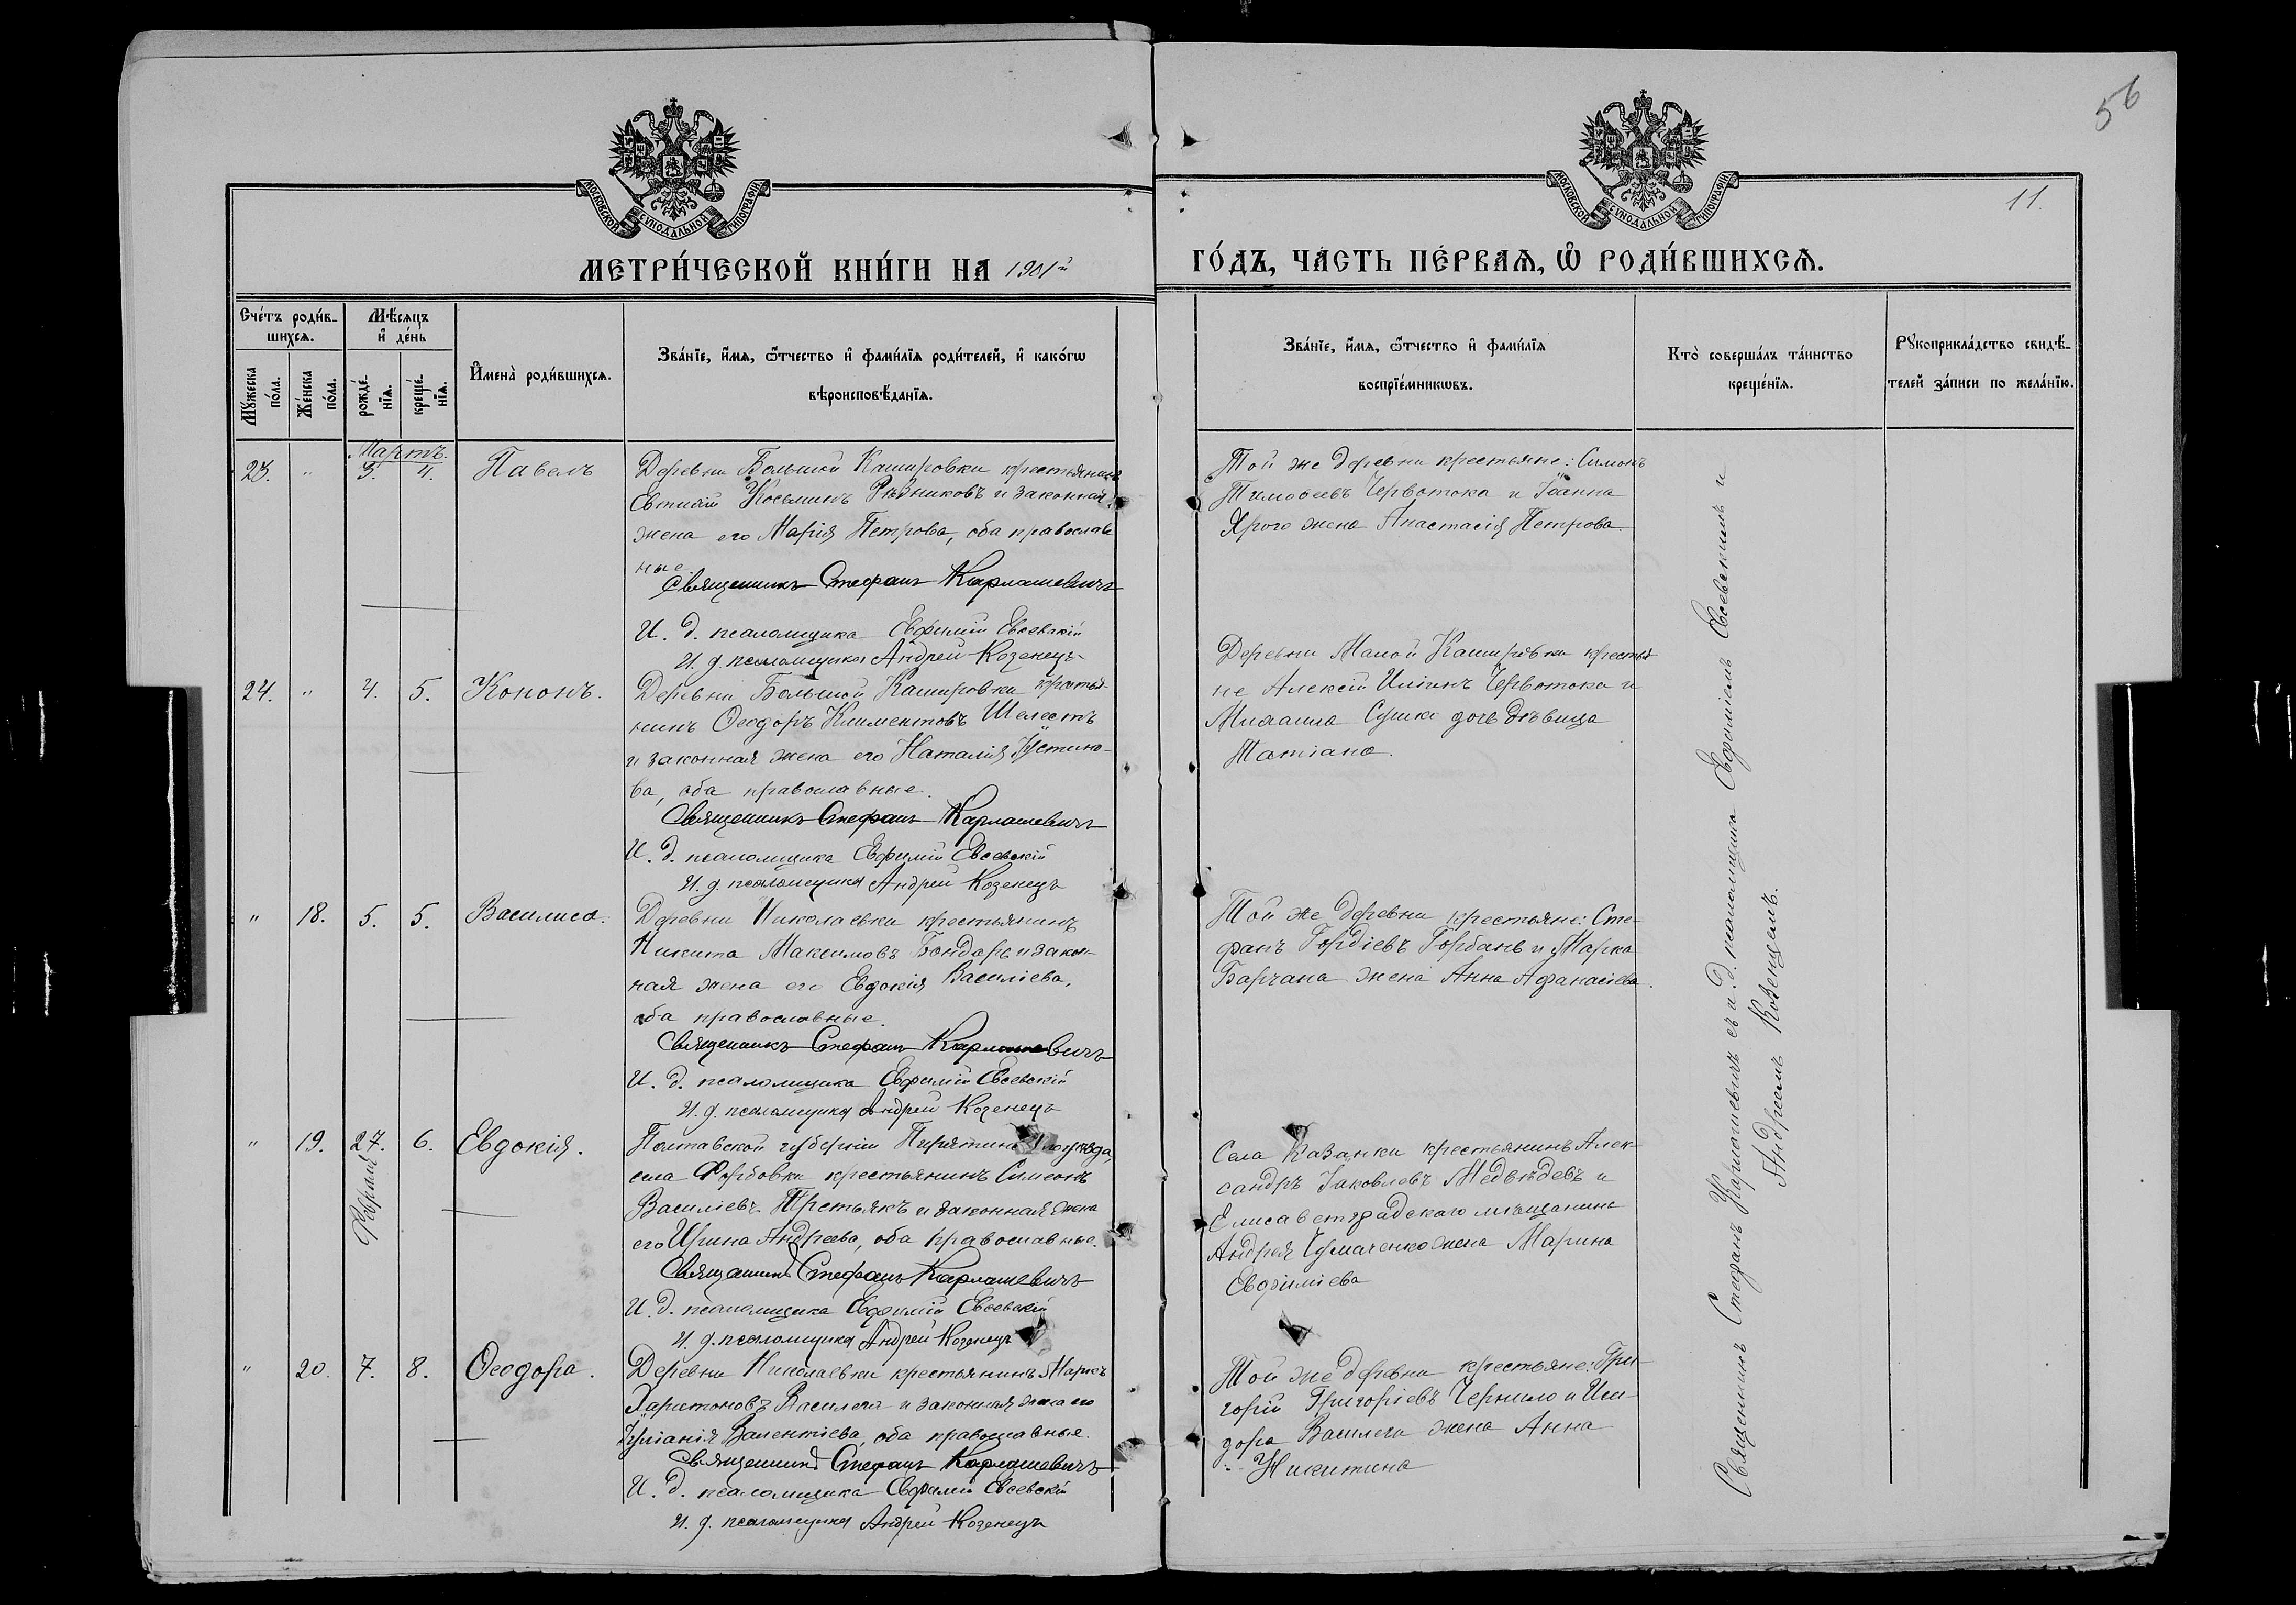 56
11.
МОСКОВСКОЙ СѴНОДАЛЬНОЙ ТИПОГРАФІИ
МОСКОВСКОЙ СѴНОДАЛЬНОЙ ТИПОГРАФІИ
МЕТРИ́ЧЕСКОЙ КНИ́ГИ НА 1901й
ГО́ДЪ, ЧА́СТЬ ПЕ́РВАѦ, Ѽ РОДИ́ВШИХСѦ.
Счётъ роди́в-
шихсѧ.
Мꙋ́жеска по́ла.
Же́нска по́ла.
Мѣ́сѧцъ
и҆ де́нь
рожде́-
нїѧ.
креще́-
нїѧ.
И҆мена̀ роди́вшихсѧ.
Зва́нїе, и҆́мѧ, ѻ҆́тчество и҆ фами́лїѧ роди́телей, и҆ како́гѡ
вѣроисповѣ́данїѧ.
Зва́нїе, и҆́мѧ, ѻ҆́тчество и҆ фами́лїѧ
воспрїе́мникѡвъ.
Кто̀ соверша́лъ та́инство
креще́нїѧ.
Рꙋкоприкла́дство свидѣ́-
телей за́писи по жела́нїю.
Мартъ.
23. " 3. 4. Павелъ
Деревни Большой Кашировки крестьянинъ
Косьминъ Рѣзниковъ и законная
жена его Марія Петрова, оба православ
ные.
Священникъ Стефанъ Карлашевичъ
И. д. псаломщика Евфимій Евсевскій
И. д. псаломщика Андрей Козенецъ
Той же деревни крестьяне: Симонъ
Тимоѳеевъ Червотока и Іоанна
Ярого жена Анастасія Петрова.
24. " 4. 5. Кононъ.
Деревни Большой Кашировки кресть-
нинъ Ѳеодоръ Климентовъ Шелестъ
и законная жена его Наталія Іустино-
ва, оба православные.
Священникъ Стефанъ Карлашевичъ
И. д. псаломщика Евфимій Евсевскій
И. д. псаломщика Андрей Козенецъ
Деревни Малой Кашировки крестья
не Алексій Иліинъ Червотока и
Михаила Сушко дочь дѣвица
Татіана.
" 18. 5. 5. Василиса.
Деревни Николаевки крестьянинъ
Никита Максимовъ Бондарь и закон-
ная жена его Евдокія Василіева,
оба православные.
Священникъ Стефанъ Карлашевичъ
И. д. псаломщика Евфимій Евсевскій
И. д. псаломщика Андрей Козенецъ
Той же деревни крестьяне: Сте-
фанъ Гордіевъ Горбань и Марка
Барчана жена Анна Аѳанасіева.
" 19. 27. 6. Евдокія.
Февраля
Полтавской губерніи уѣзда,
села крестьянинъ Симеонъ
Василіевъ Третьякъ и законная жена
его Ирина Андреева, оба православные.
Священникъ Стефанъ Карлашевичъ
И. д. псаломщика Евфимій Евсевскій
И. д. псаломщика Андрей Козенецъ
Села Казанки крестьянинъ Алек-
сандръ Іаковлевъ Медвѣдевъ и
Елисаветградскаго мѣщанина
Андрея Чумаченко жена Марина
Евфиміева
" 20. 7. 8. Ѳеодора.
Деревни Николаевки крестьянинъ Маркъ
Харитоновъ Василега и законная жена его
Іуліанія Валентіева, оба православные.
Священникъ Стефанъ Карлашевичъ
И. д. псаломщика Евфимій Евсевскій
И. д. псаломщика Андрей Козенецъ
Той же деревни крестьяне: Гри-
горій Григоріевъ Чернило и Иси-
дора Василега жена Анна
Никитина
Священникъ Стефанъ Карлашевичъ съ и. д. псаломщика Евфиміемъ Евсевскимъ и
Андреемъ Козенцемъ.